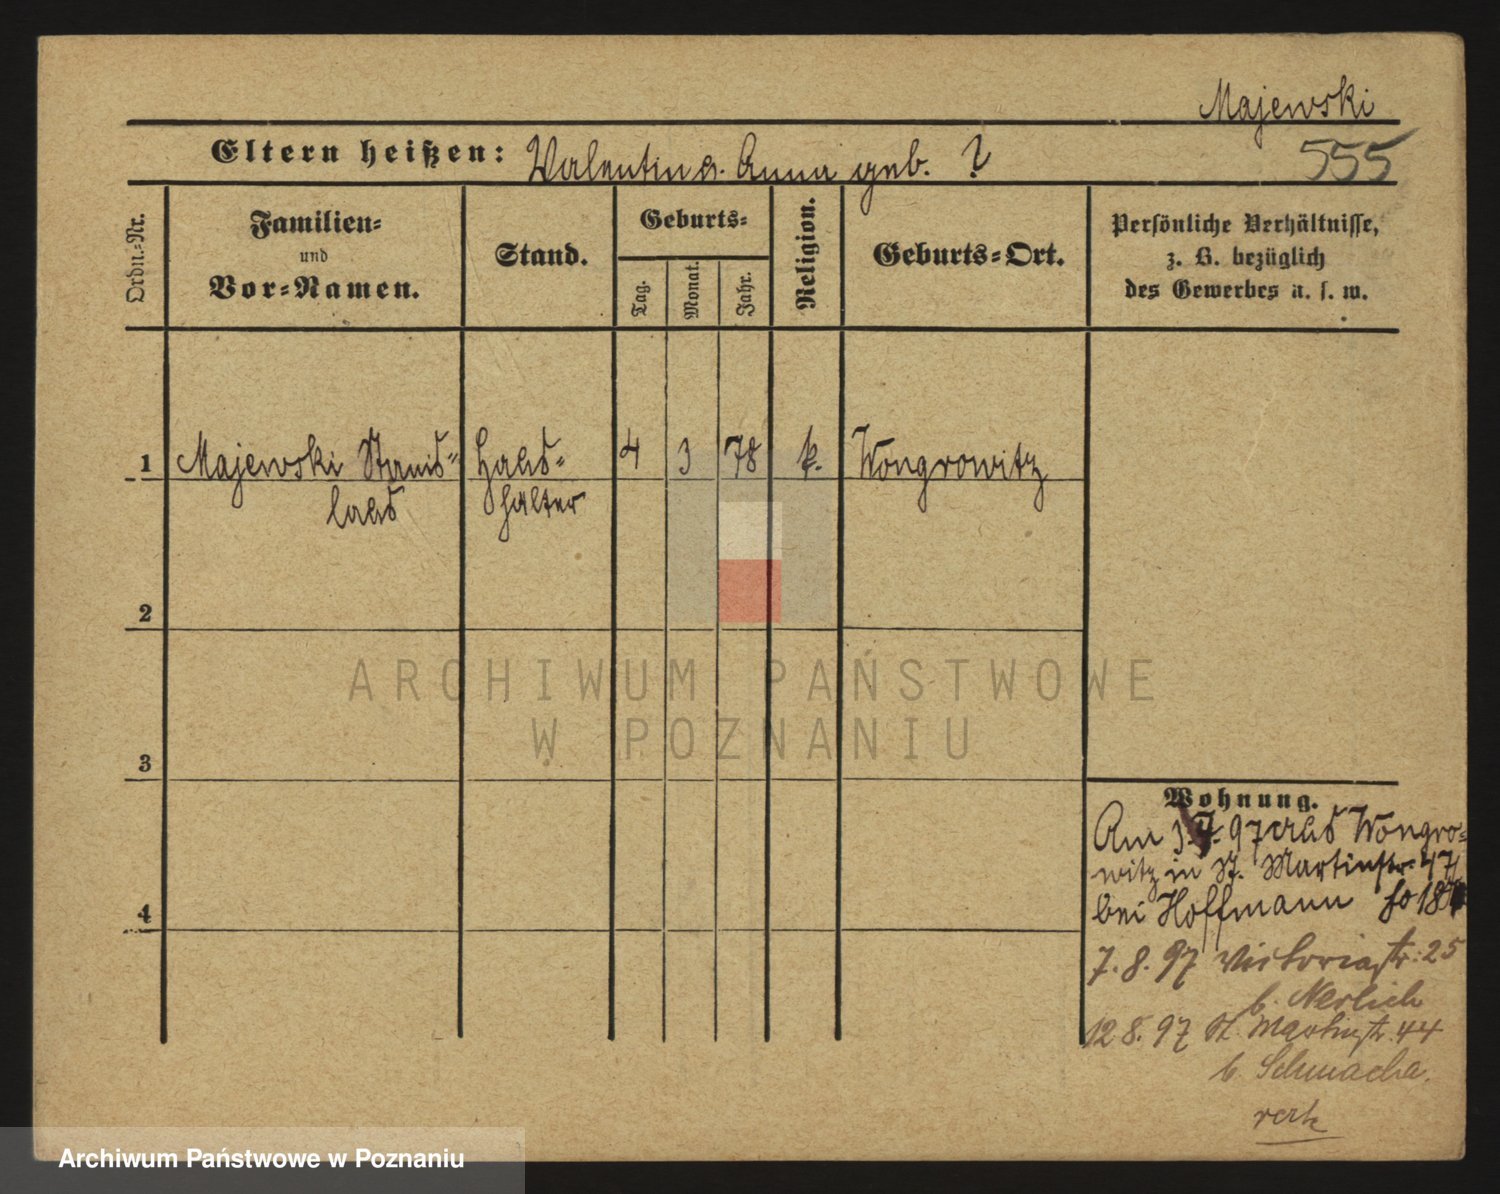 Majewski
Eltern heißen: Valentin a. Anna geb. ?
555
Ordn.-Nr.
Familien-
und
Vor-Namen.
Stand.
Geburts-
Tag.
Monat.
Jahr.
Religion.
Geburts-Ort.
Persönliche Verhältnisse,
z. B. bezüglich
des Gewerbes u. s. w.
1 Majewski Stanis- Haus- 4 3 78 k. Wongrowitz
laus halter
2
3
4
Wohnung.
Am 3. 97 aus Wongro-
witz in St. Martinstr. 47
bei Hoffmann
7. 8. 97 Victoriastr. 25
b. Nerlich
12 8. 97 St. Martinstr. 44
b.
ARCHIWUM PAŃSTWOWE
W POZNANIU
Archiwum Państwowe w Poznaniu